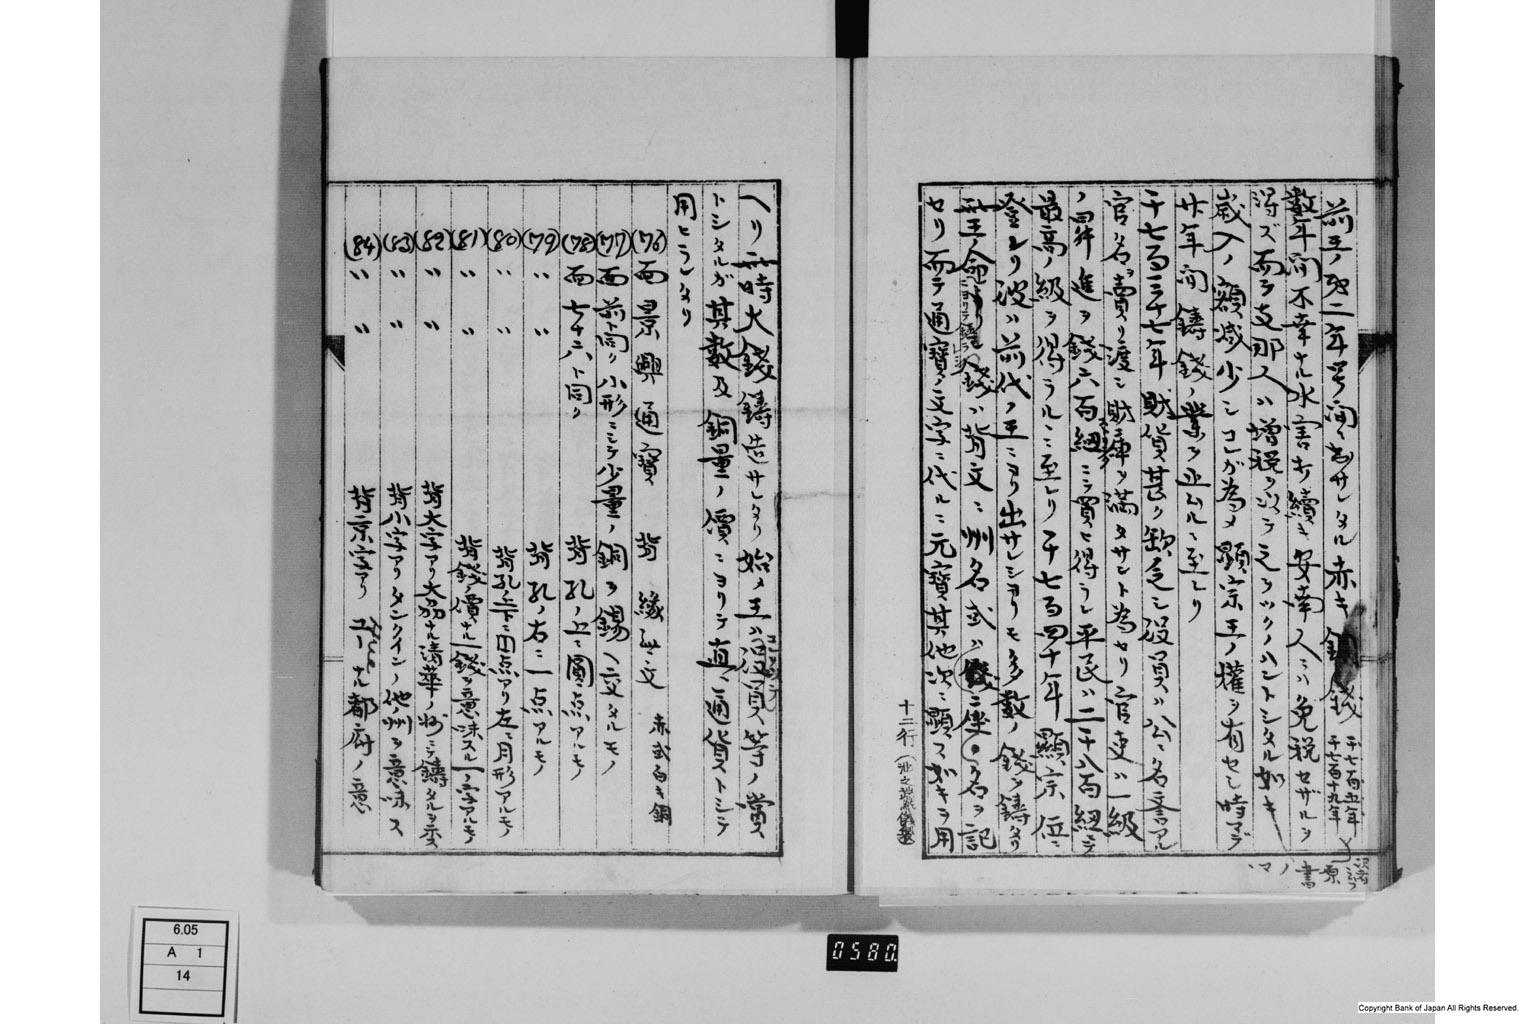 前王ノ死二年ノ間
赤キ
銭
千七百五年
千七百十九年
原書ノマヽ
数年間不幸ナル水害打續キ安南人ニハ免税セザルヲ
得ズ而テ支那人ハ増税ヲ以テ之ヲツクノハントシタル如キ
歳入ノ額減少シコレガ為メ顕宗王ノ權ヲ有セシ時マデ
廿年間鋳銭ノ業ヲ止ムルニ至レリ
千七百三十七年財貨甚ク欠乏シ役員ハ公ニ名
官名ヲ賣リ渡シ財庫ヲ満タサント為セリ官吏ハ一級
ノ昇進ヲ銭六百紐ニテ買ヒ得ラレ平民ハ二千八百紐ニテ
最高ノ級ヲ得ラルヽニ至レリ千七百四十年顕宗位ニ
登レリ彼ハ前代ノ王ニヨリ出サレシヨリモ多数ノ銭ヲ鋳タリ
銭ハ背文ニ州名或ハ
名ヲ記
セリ而テ通寶ノ文字ニ代ルニ元寶其他次ニ顕ス如キヲ用
十二行
ヘリ
時大銭鋳造サレタリ始メ王ハ役員等ノ賞
トシタルガ其数及銅量ノ價ニヨリテ直ニ通貨トシテ
用ヒラレタリ
(76) 面 景興通寶 背 縁無文 赤或白キ銅
(77) 面前ト同ク小形ニシテ少量ノ銅ヲ錫ヘ交タルモノ
(78) 面七十六ト同ク 背孔ノ上ニ圓点アルモノ
(79) 〃 〃 背孔ノ右ニ一点アルモノ
(80) 〃 〃 背孔ノ下ニ円点アリ左ニ月形アルモノ
(81) 〃 〃 背銭ノ價ナル一銭ヲ意味スル一ノ字アルモノ
(82) 〃 〃 背大字アリ大
ナル清華ノ州ニテ鋳タルヲ示ス
(83) 〃 〃 背小字アリタンクインノ他ノ州ヲ意味ス
(84) 〃 〃 背京字アリ
ナル都府ノ意
6.05
A 1
14
0580.
Copyright Bank of Japan All Rights Reserved.